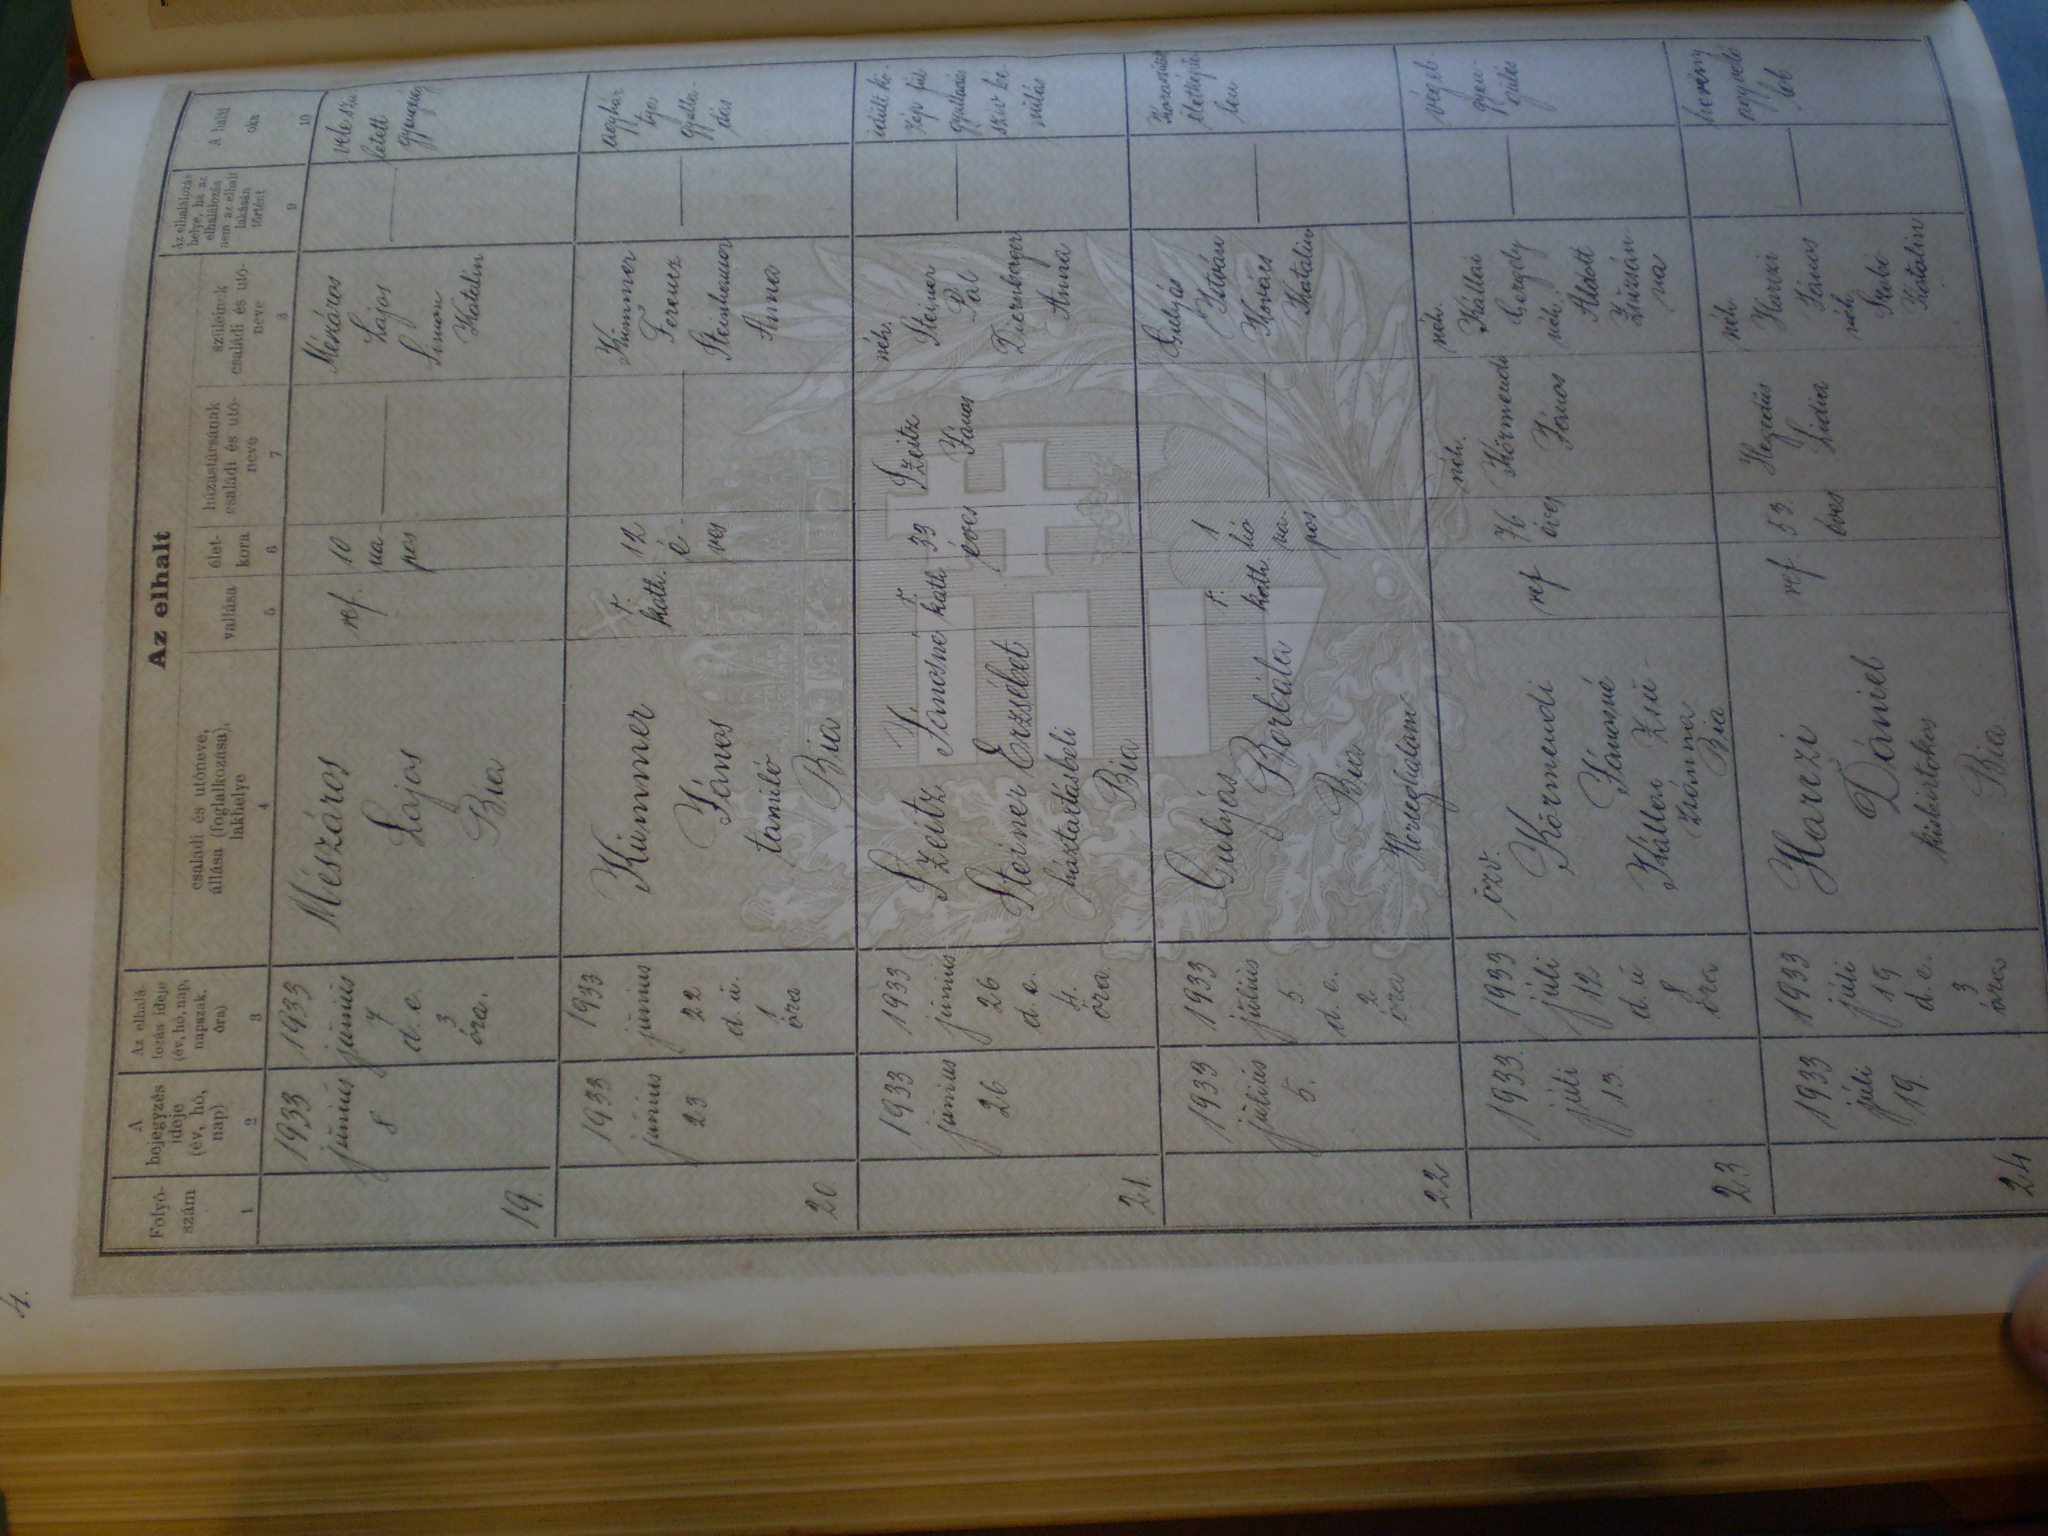 4.
Az elhalt
Folyó-
szám
A
bejegyzés
ideje
(év, hó,
nap)
Az elhalá-
lozás ideje
(év, hó, nap,
napszak,
óra)
családi és utóneve,
állása (foglalkozása),
lakhelye
vallása
élet-
kora
házastársának
családi és utó-
neve
szüleinek
családi és utó-
neve
Az elhalálozás
helye, ha az
elhalálozás
nem az elhalt
lakásán
történt
A halál
oka
1
2
3
4
5
6
7
8
9
10
19.
1933
június
8
1933
június
7
d. e.
3
óra.
Mészáros
Lajos
Bia
ref.
10
na-
pos
Mészáros
Lajos
Simon
Katalin
vele szü
letett
gyengeség
20.
1933
június
23
1933
június
22
d. u.
1
óra
Kimmer
János
tanuló
Bia
r.
kath.
12
é-
ves
Kimmer
Ferencz
Steinhauser
Anna
agyhár
tya
gyulla-
dás
21.
1933
június
26
1933
június
26
d. e.
4.
óra.
Szeitz Jánosné
Steiner Erzsébet
háztartásbeli
Bia
r.
kath
33
éves
Szeitz
János
néh.
Steiner
Pál
Anna
idült kö-
zép fül
gyulladás
szív bé-
nulás
22
1933
július
5.
1933
július
5.
d. e.
2
óra
Gulyás
Borbála
Bia
Herceghalom
r.
kath.
1
hó
na-
pos
Gulyás
István
Kovács
Katalin
Koraszülött
életképte
len
23
1933.
júli
13.
1933
júli
12
d. u
8
óra
özv.
Körmendi
Jánosné
Kállai Zsu-
zsánna
Bia
ref
76
éves
néh.
Körmendi
János
néh.
Kállai
Gergely
néh.
Zsuzsán-
na
végel-
gyen-
gülés
24
1933
júli
19.
1933
júli
19
d. e.
3
óra
Harzi
Dániel
kisbirtokos
Bia.
ref.
53.
éves
Hegedüs
Lidia
néh
Harzi
János
néh
Szabó
Katalin
heveny